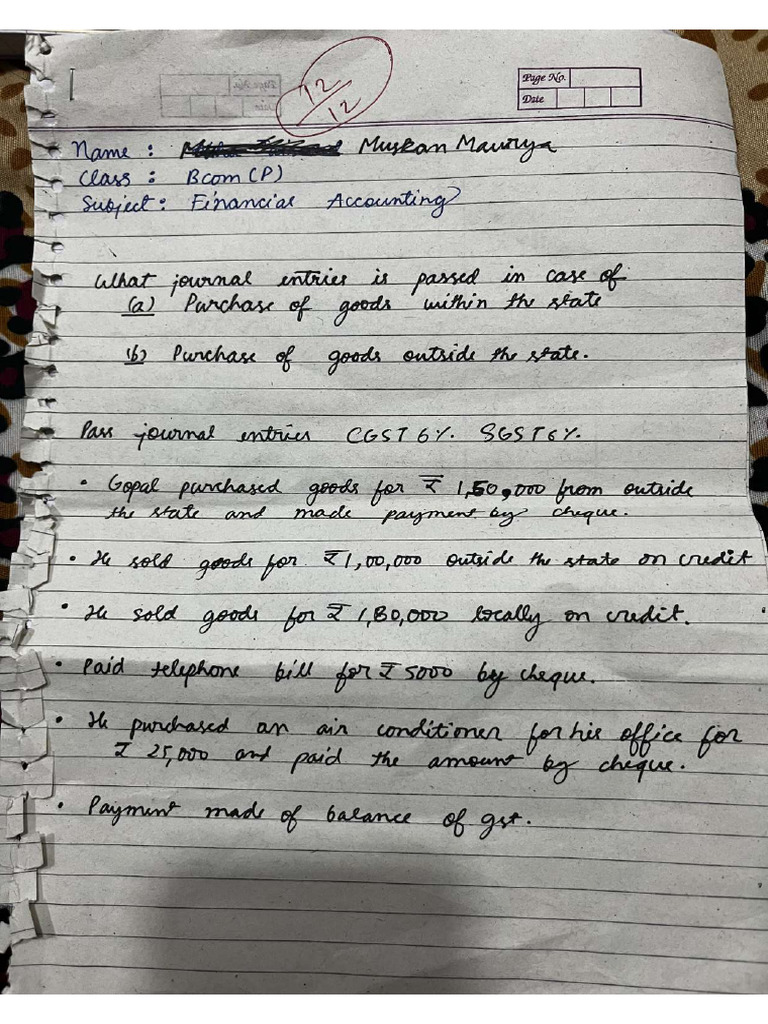 Page No.
Date
12/12
Name : Muskan Maurya
Class : Bcom (P)
Subject : Financial Accounting
What journal entries is passed in case of
(a) Purchase of goods within the state
(b) Purchase of goods outside the state.
Pass journal entries CGST 6%. SGST 6%.
• Gopal purchased goods for ₹ 1,50,000 from outside
the state and made payment by cheque.
• He sold goods for ₹1,00,000 outside the state on credit
• He sold goods for ₹ 1,80,000 locally on credit.
• Paid telephone bill for ₹ 5000 by cheque.
• He purchased an air conditioner for his office for
₹ 25,000 and paid the amount by cheque.
• Payment made of balance of gst.